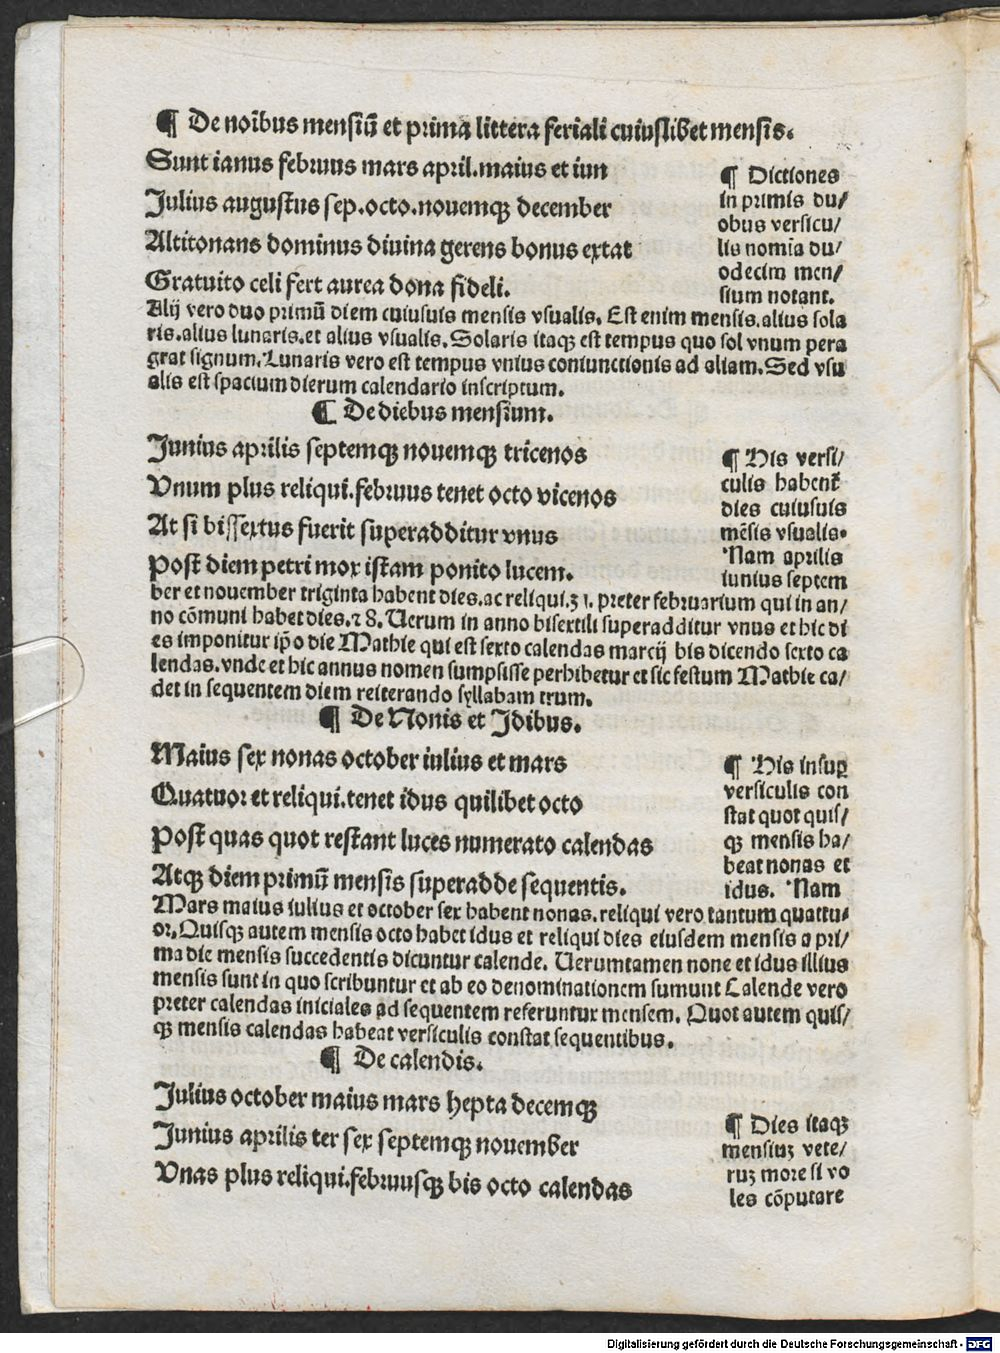 ¶ De noībus mensiū et prima littera feriali cuiuslibet mensis.
Sunt ianus februus mars april.maius et iun
Julius augustus sep.octo.nouemqꝫ december
Altitonans dominus diuina gerens bonus extat
Gratuito celi fert aurea dona fideli.
¶ Dictiones
in primis du/
obus versicu/
lis nomīa du/
odecim men/
sium notant.
Alij vero duo primū diem cuiusuis mensis vsualis. Est enim mensis.alius sola
ris.alius lunaris.et alius vsualis. Solaris itaqꝫ est tempus quo sol vnum pera
grat signum. Lunaris vero est tempus vnius coniunctionis ad aliam. Sed vsu
alis est spacium dierum calendario inscriptum.
¶ De diebus mensium.
Junius aprilis septemqꝫ nouemqꝫ tricenos
Vnum plus reliqui.februus tenet octo vicenos
At si bissextus fuerit superadditur vnus
Post diem petri mox istam ponito lucem.
¶ His versi/
culis habent᷑
dies cuiusuis
mēsis vsualis.
Nam aprilis
iunius septem
ber et nouember triginta habent dies.ac reliqui.31. preter februarium qui in an/
no cōmuni habet dies.28. Uerum in anno bisextili superadditur vnus et hic di
es imponitur ip̄o die Mathie qui est sexto calendas marcij bis dicendo sexto ca
lendas.vnde et hic annus nomen sumpsisse perhibetur et sic festum Mathie ca/
det in sequentem diem reiterando syllabam trum.
¶ De Nonis et Idibus.
Maius sex nonas october iulius et mars
Quatuor et reliqui.tenet idus quilibet octo
Post quas quot restant luces numerato calendas
Atqꝫ diem primū mensis superadde sequentis.
¶ His insuꝑ
versiculis con
stat quot quis/
qꝫ mensis ha/
beat nonas et
idus. Nam
Mars maius iulius et october sex habent nonas.reliqui vero tantum quattu/
or. Quisqꝫ autem mensis octo habet idus et reliqui dies eiusdem mensis a pri/
ma die mensis succedentis dicuntur calende. Uerumtamen none et idus illius
mensis sunt in quo scribuntur et ab eo denominationem sumunt Calende vero
preter calendas iniciales ad sequentem referuntur mensem. Quot autem quis/
qꝫ mensis calendas habeat versiculis constat sequentibus.
¶ De calendis.
Julius october maius mars hepta decemqꝫ
Junius aprilis ter sex septemqꝫ nouember
Vnas plus reliqui.februusqꝫ bis octo calendas
¶ Dies itaqꝫ
mensiuꝫ vete/
ruꝫ more si vo
les cōputare
Digitalisierung gefördert durch die Deutsche Forschungsgemeinschaft - DFG